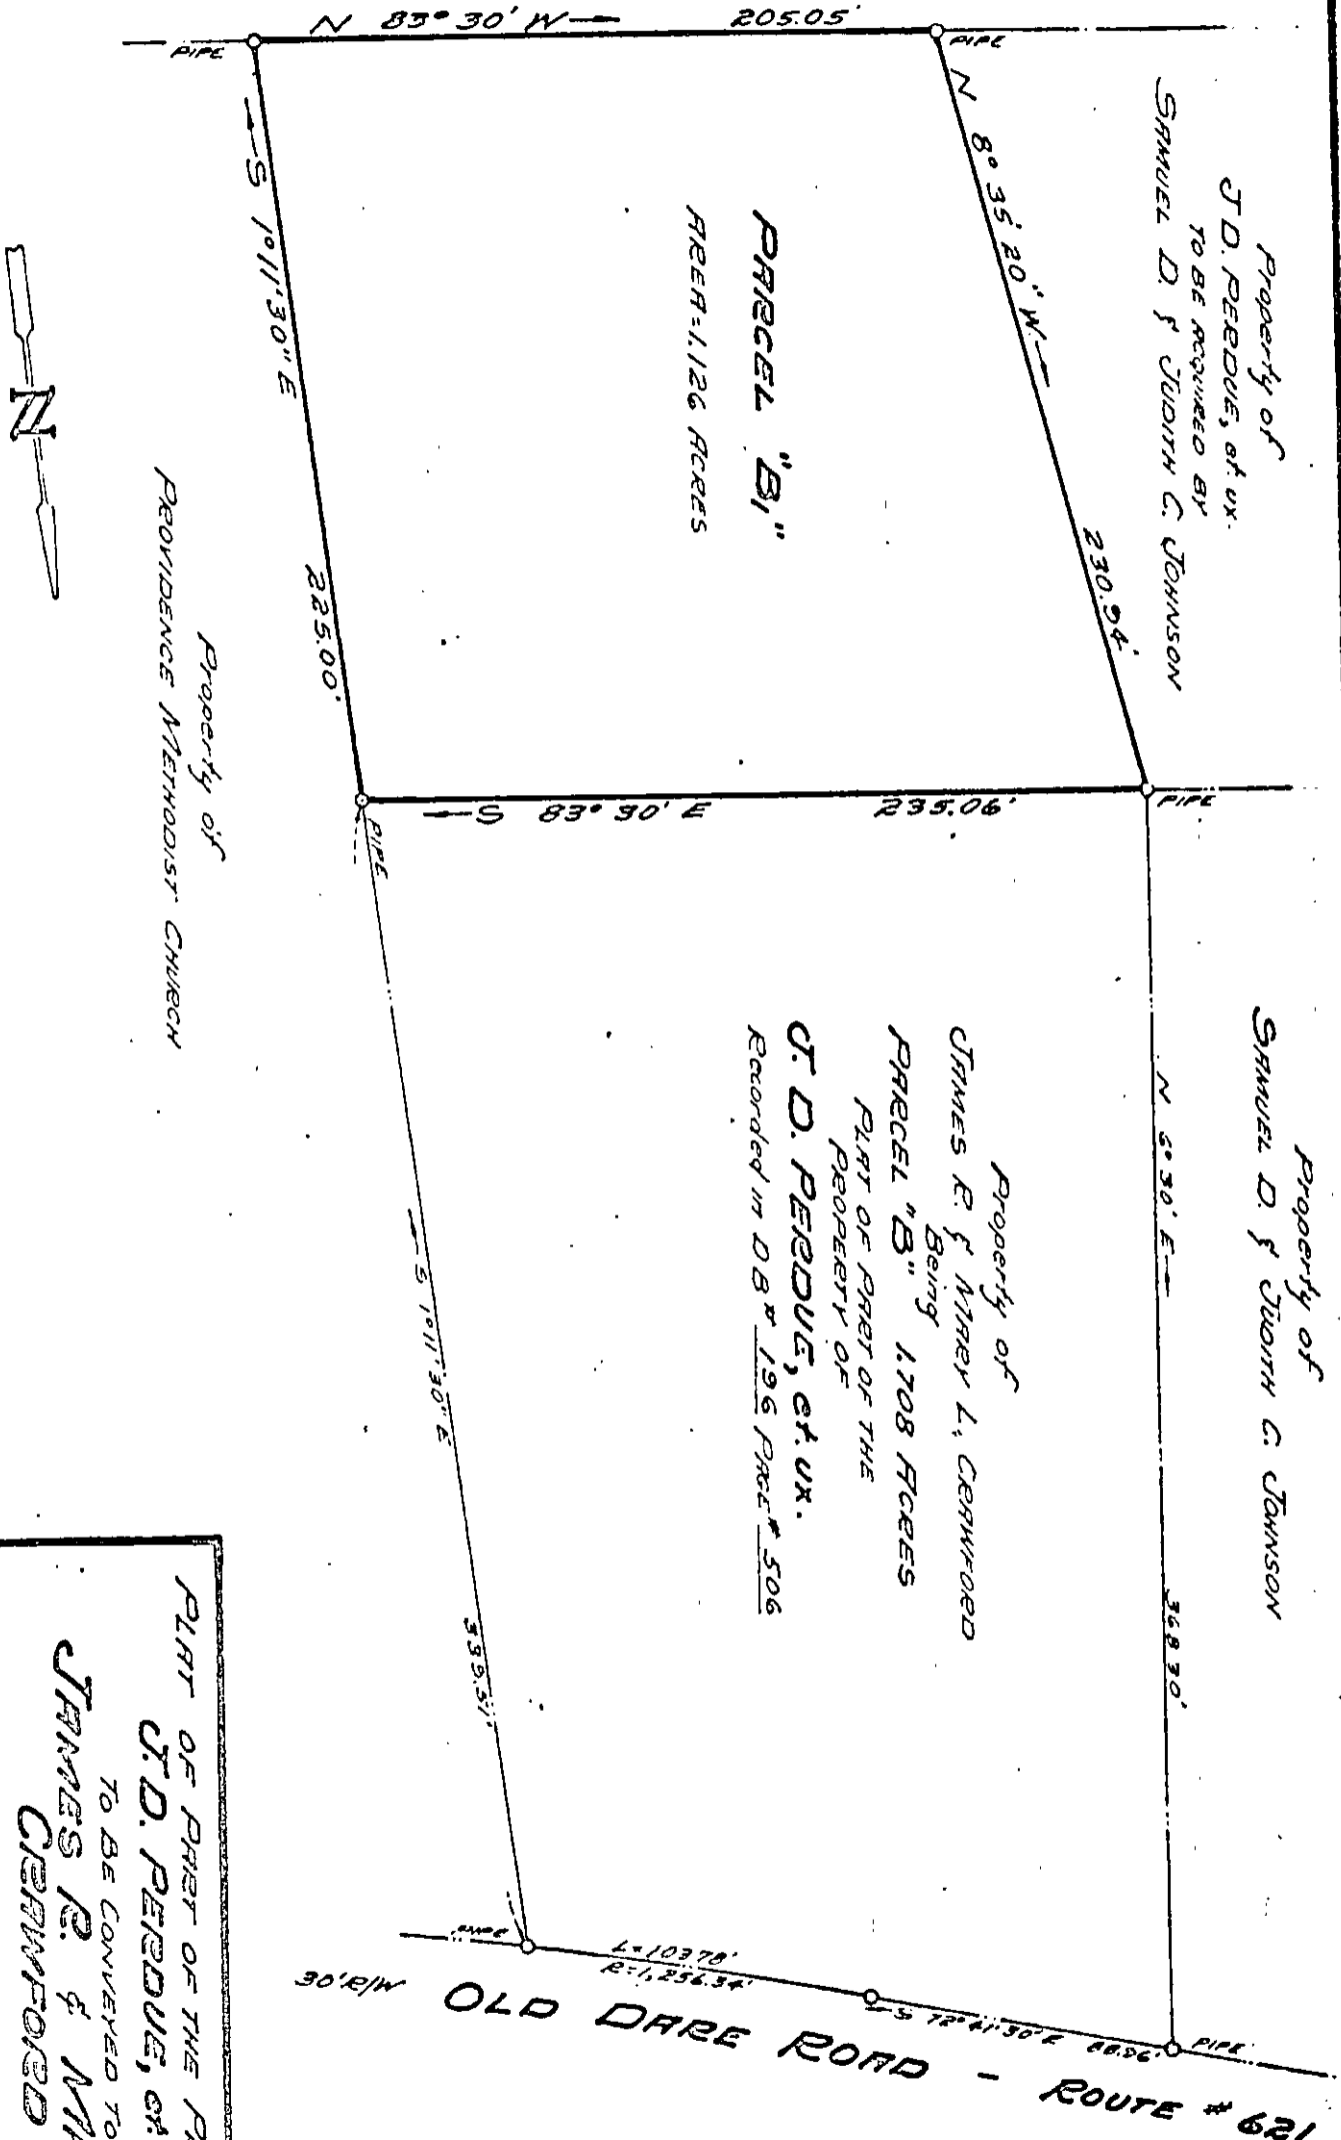 N 83° 30' W
205.05'
PIPE
PIPE
N 8° 35' 20" W
230.94'
Property of
J. D. PERDUE, et. ux.
TO BE ACQUIRED BY
SAMUEL D. & JUDITH C. JOHNSON
PARCEL "B₁"
AREA=1.126 ACRES
S 1° 11' 30" E
225.00'
S 83° 30' E
235.06'
PIPE
PIPE
N
Property of
PROVIDENCE METHODIST CHURCH
Property of
SAMUEL D. & JUDITH C. JOHNSON
N 6° 30' E
368.30'
Property of
JAMES R. & MARY L. CRAWFORD
Being
PARCEL "B" 1.708 ACRES
PLAT OF PART OF THE
PROPERTY OF
J. D. PERDUE, et. ux.
Recorded in D B # 196 PAGE # 506
S 1° 11' 30" E
339.51'
PIPE
L=103.78'
R=1,256.34'
S 72° 41' 30" E
88.96'
PIPE
30' R/W
OLD DARE ROAD - ROUTE # 621
PLAT OF PART OF THE
J. D. PERDUE, et.
TO BE CONVEYED TO
JAMES R. &
CRAWFORD